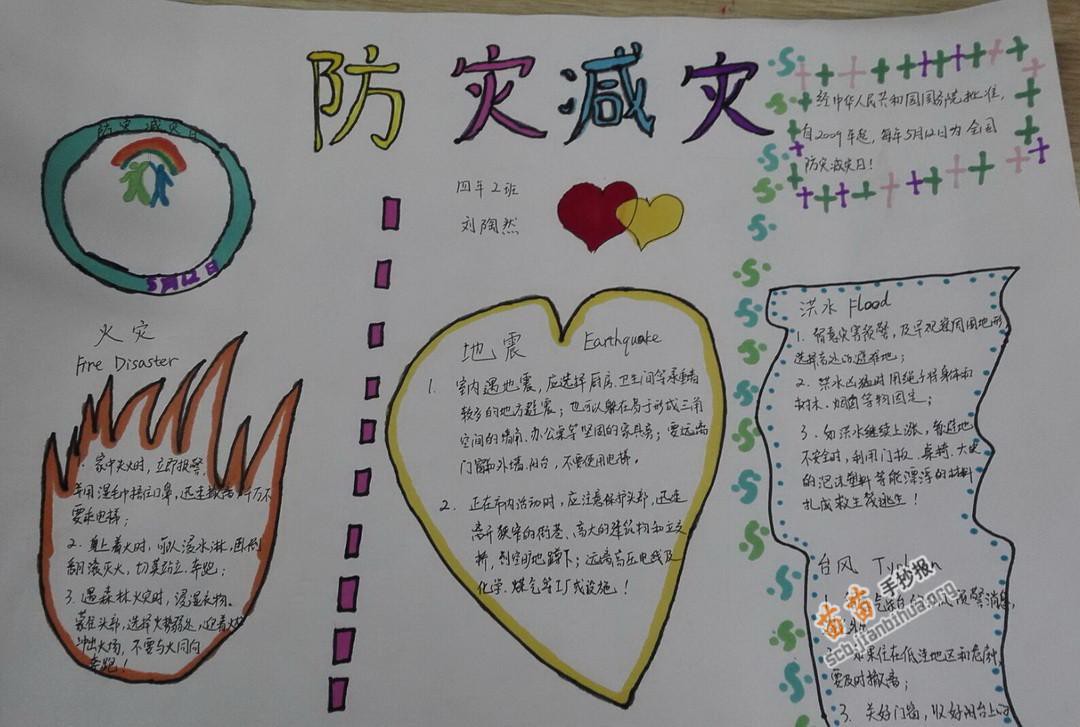 防灾减灾
防灾减灾日
5月12日
四年2班
刘陶然
经中华人民共和国国务院批准，
自2009年起，每年5月12日为全国
防灾减灾日！
火灾
Fire Disaster
1. 家中失火时，立即报警，
并用湿毛巾捂住口鼻，迅速撤离，千万不
要乘电梯；
2. 身上着火时，可以浸水淋，
翻滚灭火，切莫站立、奔跑；
3. 遇森林火灾时，浸湿衣物。
蒙住头部，选择火势弱处，迎着火
冲出火场，不要与火同向
奔跑！
地震 Earthquake
1. 室内遇地震，应选择厨房、卫生间等承重墙
较多的地方避震；也可以躲在易于形成三角
空间的墙角、办公桌等坚固的家具旁；要远离
门窗和外墙、阳台，不要使用电梯。
2. 正在市内活动时，应注意保护头部，迅速
离开狭窄的街巷、高大的建筑物和立交
桥，到空旷地蹲下；远离高压电线及
化学、煤气等工厂或设施！
洪水 Flood
1. 留意灾害预警，及早观察周围地形
选择高处的避难地；
2. 洪水凶猛时用绳子将身体和
树木、烟囱等物固定；
3. 如洪水继续上涨，暂避地
不安全时，利用门板、桌椅、大块
的泡沫塑料等能漂浮的材料
扎成救生筏逃生！
台风
预警消息，
2. 如果住在低洼地区和危房，
要及时撤离；
3. 关好门窗，收好阳台上
苗苗手抄报
scb.jianbihua.org